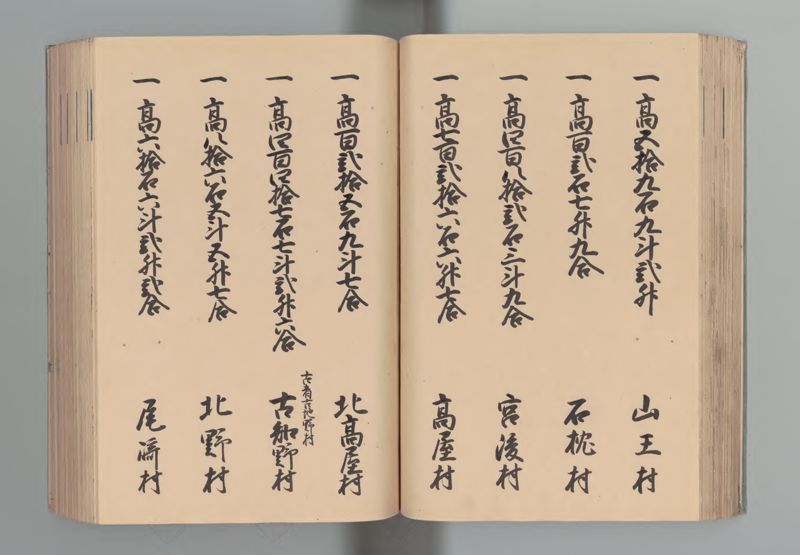 一 高五拾九石九斗弐升 山王村
一 高百弐石七升九合 石枕村
一 高四百八拾弐石三斗九合 宮後村
一 高七百弐拾六石六升七合 高屋村
一 高百弐拾五石九斗七合 北高屋村
一 高四百四拾七石七斗弐升六合 古知野村
古者古地野村
一 高八拾六石五斗五升七合 北野村
一 高六拾石六斗弐升弐合 尾崎村